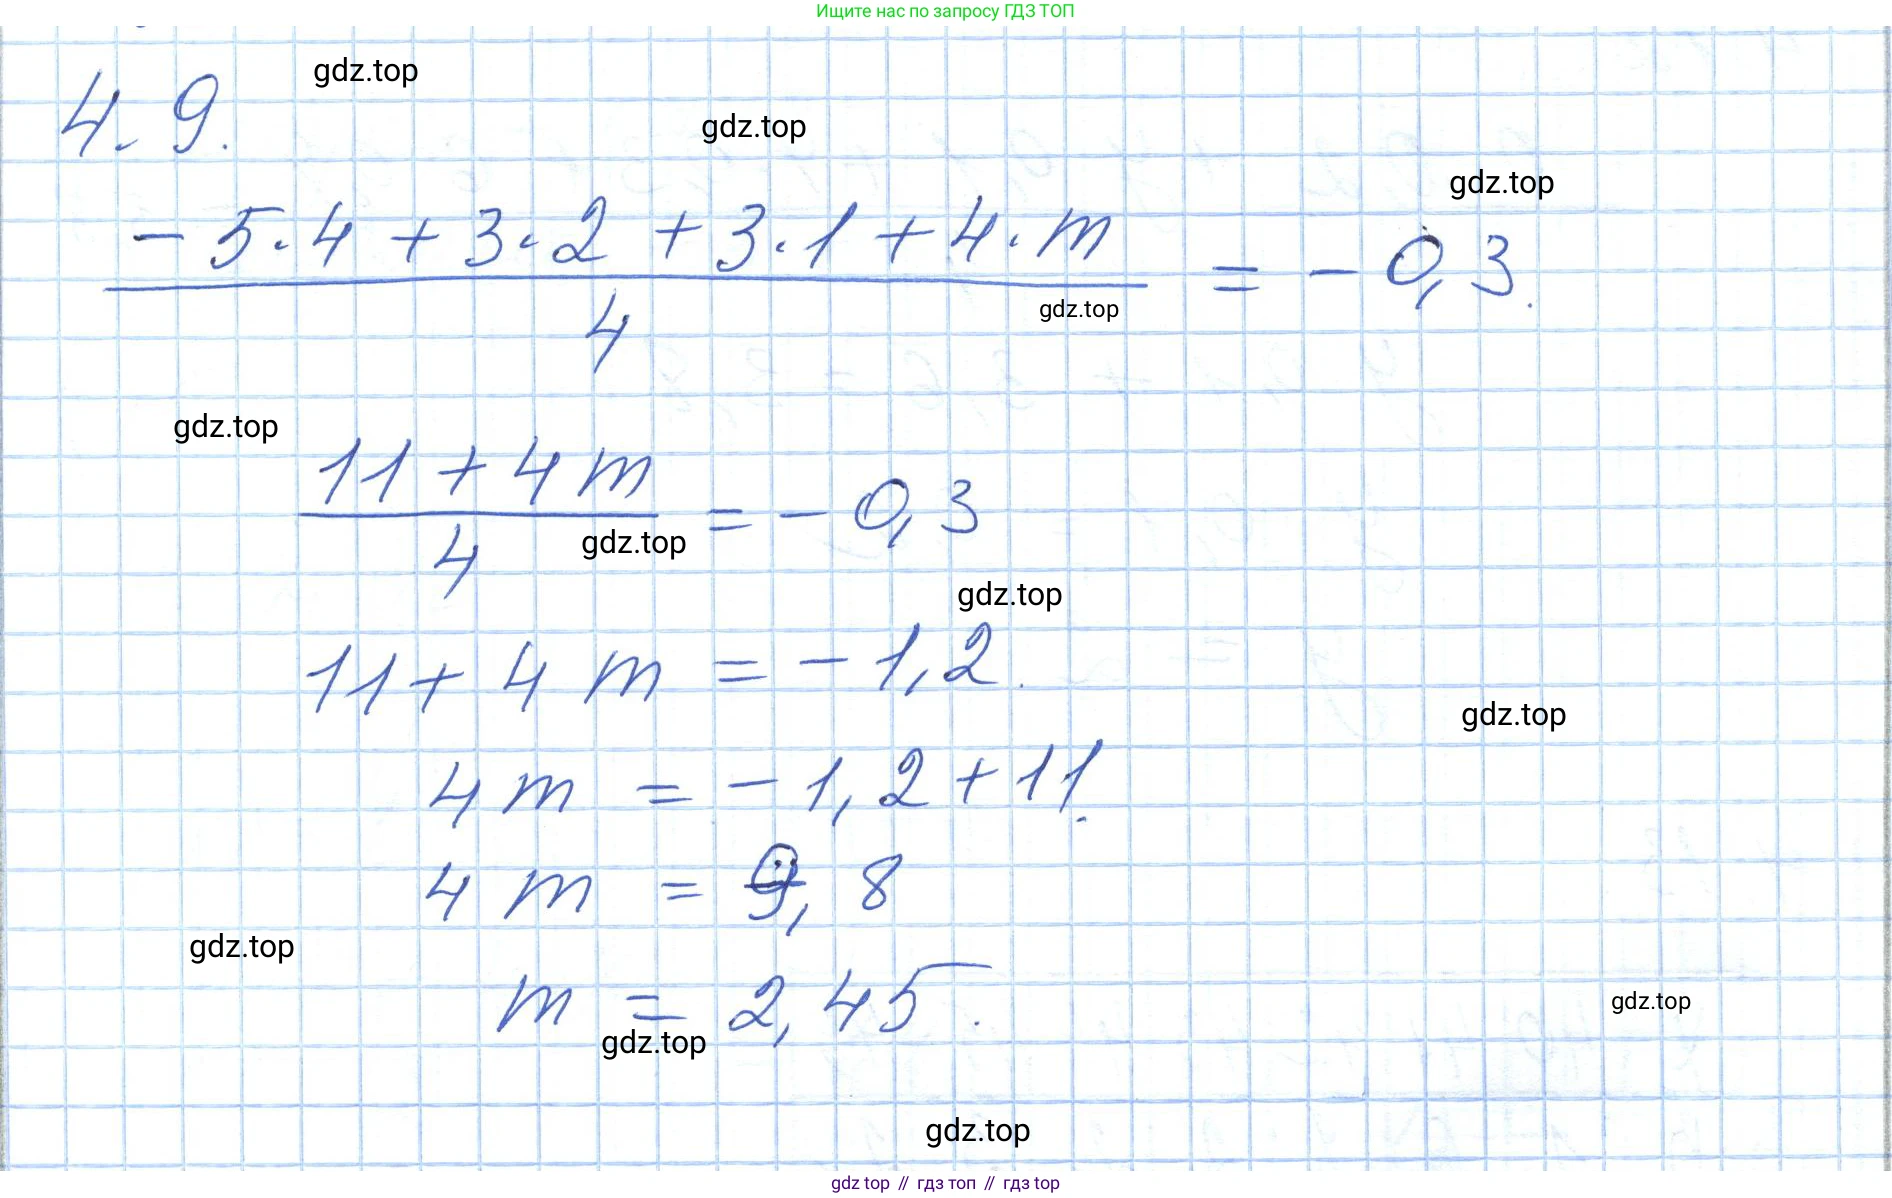 Ищите нас по запросу ГДЗ ТОП
gdz.top
4.9.
gdz.top
gdz.top
-5·4+3·2+3·1+4·m
———
4
= -0,3.
gdz.top
gdz.top
11+4m
———
4
= -0,3
gdz.top
gdz.top
11+4m = -1,2.
gdz.top
4m = -1,2+11.
4m = 9,8
gdz.top
m = 2,45.
gdz.top
gdz.top
gdz.top
gdz top // гдз топ // гдз top